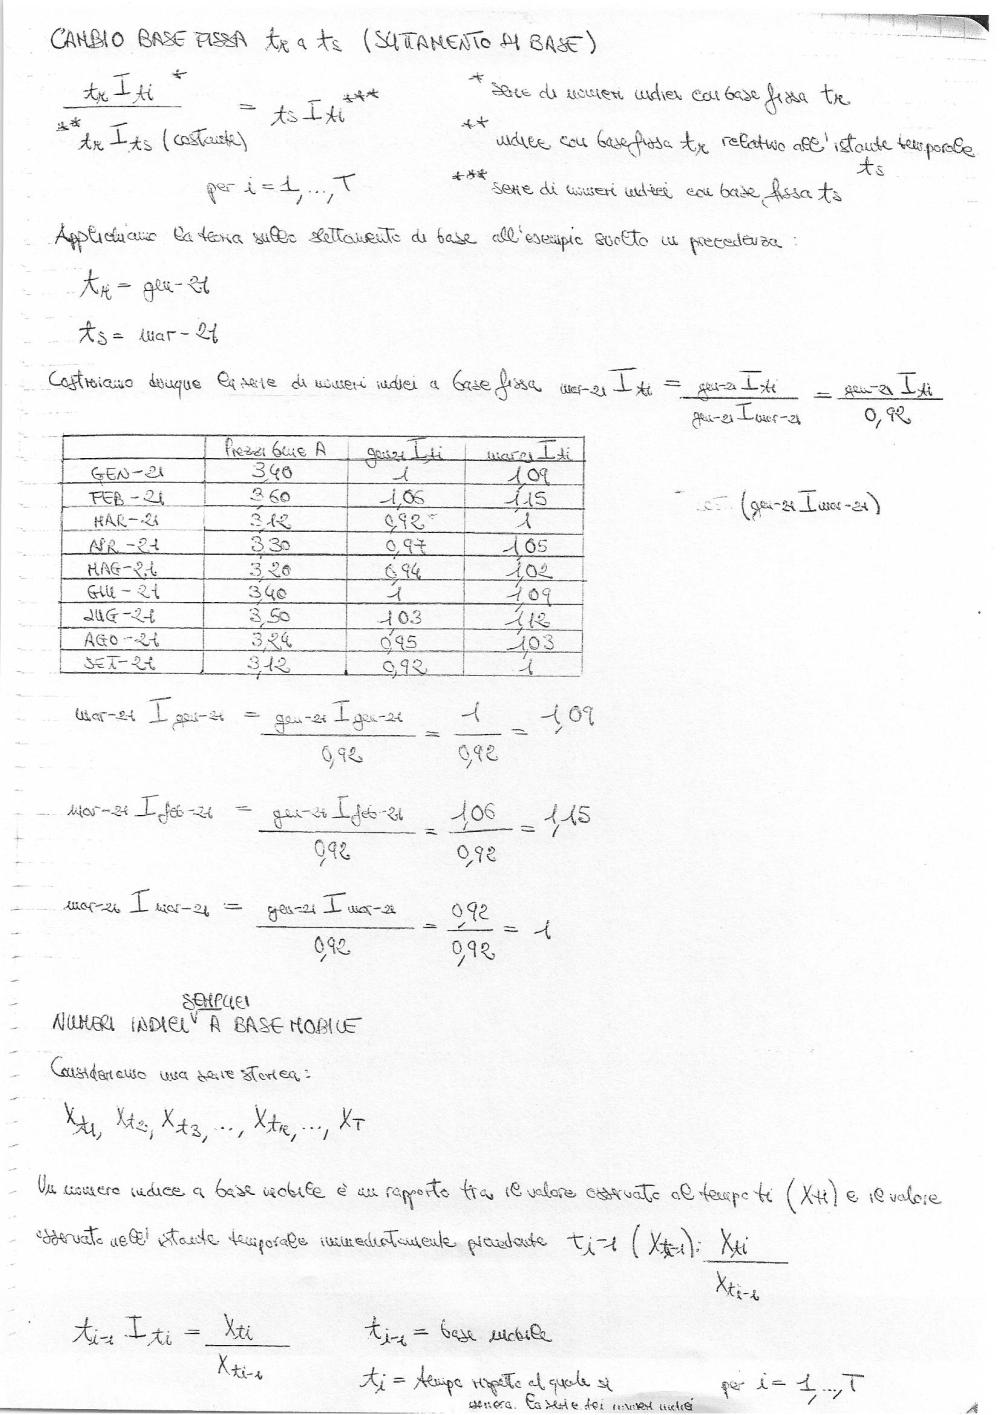 CAMBIO BASE FISSA tr a ts (SLITTAMENTO DI BASE)
tr I ti * / ** tr I ts (costante) = ts I ti ***
per i = 1, ..., T
* serie di numeri indici con base fissa tr
** indice con base fissa tr relativo all'istante temporale ts
*** serie di numeri indici con base fissa ts
Applichiamo la teoria sullo slittamento di base all'esempio svolto in precedenza:
tr = gen-21
ts = mar-21
Costruiamo dunque la serie di numeri indici a base fissa mar-21 I ti = gen-21 I ti / gen-21 I mar-21 = gen-21 I ti / 0,92
Prezzi bene A gen21 I ti mar21 I ti
GEN-21 3,40 1 1,09
FEB-21 3,60 1,06 1,15
MAR-21 3,12 0,92 1
APR-21 3,30 0,97 1,05
MAG-21 3,20 0,94 1,02
GIU-21 3,40 1 1,09
LUG-21 3,50 1,03 1,12
AGO-21 3,24 0,95 1,03
SET-21 3,12 0,92 1
(gen-21 I mar-21)
mar-21 I gen-21 = gen-21 I gen-21 / 0,92 = 1 / 0,92 = 1,09
mar-21 I feb-21 = gen-21 I feb-21 / 0,92 = 1,06 / 0,92 = 1,15
mar-21 I mar-21 = gen-21 I mar-21 / 0,92 = 0,92 / 0,92 = 1
NUMERI INDICI SEMPLICI A BASE MOBILE
Consideriamo una serie storica:
Xt1, Xt2, Xt3, ..., Xtr, ..., XT
Un numero indice a base mobile è un rapporto tra il valore osservato al tempo ti (Xti) e il valore
osservato nell'istante temporale immediatamente precedente ti-1 (Xti-1): Xti / Xti-1
ti-1 I ti = Xti / Xti-1
ti-1 = base mobile
ti = tempo rispetto al quale si
genera la serie dei numeri indici
per i = 1, ..., T